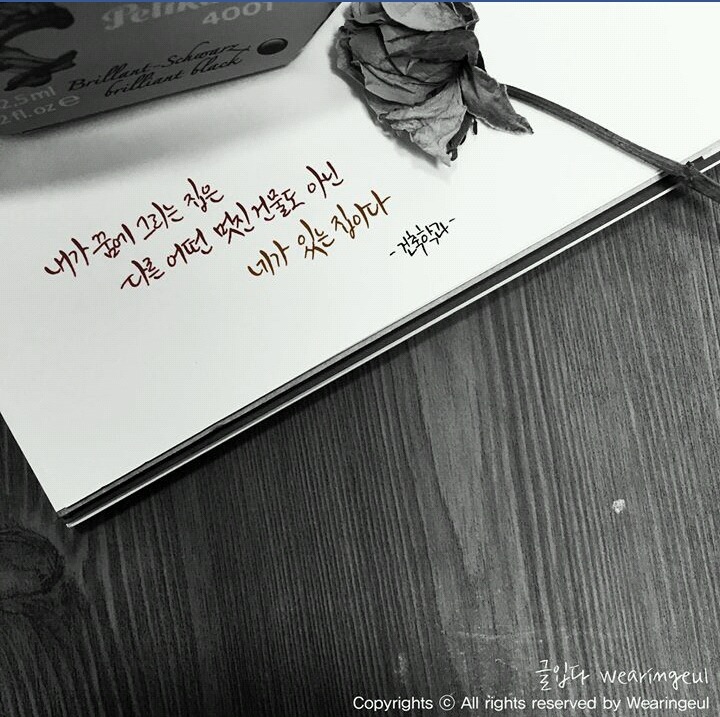 Pelikan
4001
Brillant-Schwarz
brilliant black
2.5ml
2fl.oz e
내가 꿈에 그리는 집은
다른 어떤 멋진 건물도 아닌
네가 있는 집이다
-건축학과-
글입다 wearingeul
Copyrights ⓒ All rights reserved by Wearingeul